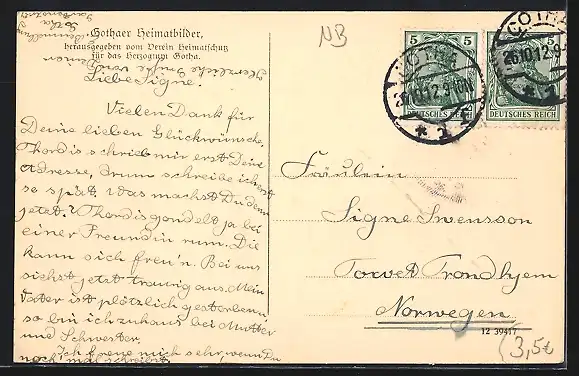 Gothaer Heimatbilder,
herausgegeben vom Verein Heimatschutz
für das Herzogtum Gotha.
Herzliche Grüße von
Liebe Signe.
Vielen Dank für
Deine lieben Glückwünsche,
Thordis schrieb mir erst Deine
Adresse, drum schreibe ich erst
so spät. Was machst Du denn
jetzt? Thordis gondelt ja bei
einer Freundin rum. Die
kann sich freu'n. Bei uns
siehst jetzt traurig aus. Mein
Vater ist plötzlich gestorben
so bin ich zuhaus bei Mutter
und Schwester.
Ich freue mich sehr, wenn Du
noch mal schreibst.
NB
5 5
DEUTSCHES REICH DEUTSCHES REICH
GOTHA
26.10.12.9-10V.
* 2
GOTHA
26.10.12.9-
* 2
Fräulein
Signe Svensson
Torvet Trondhjem
Norwegen
12 39417
3,5€